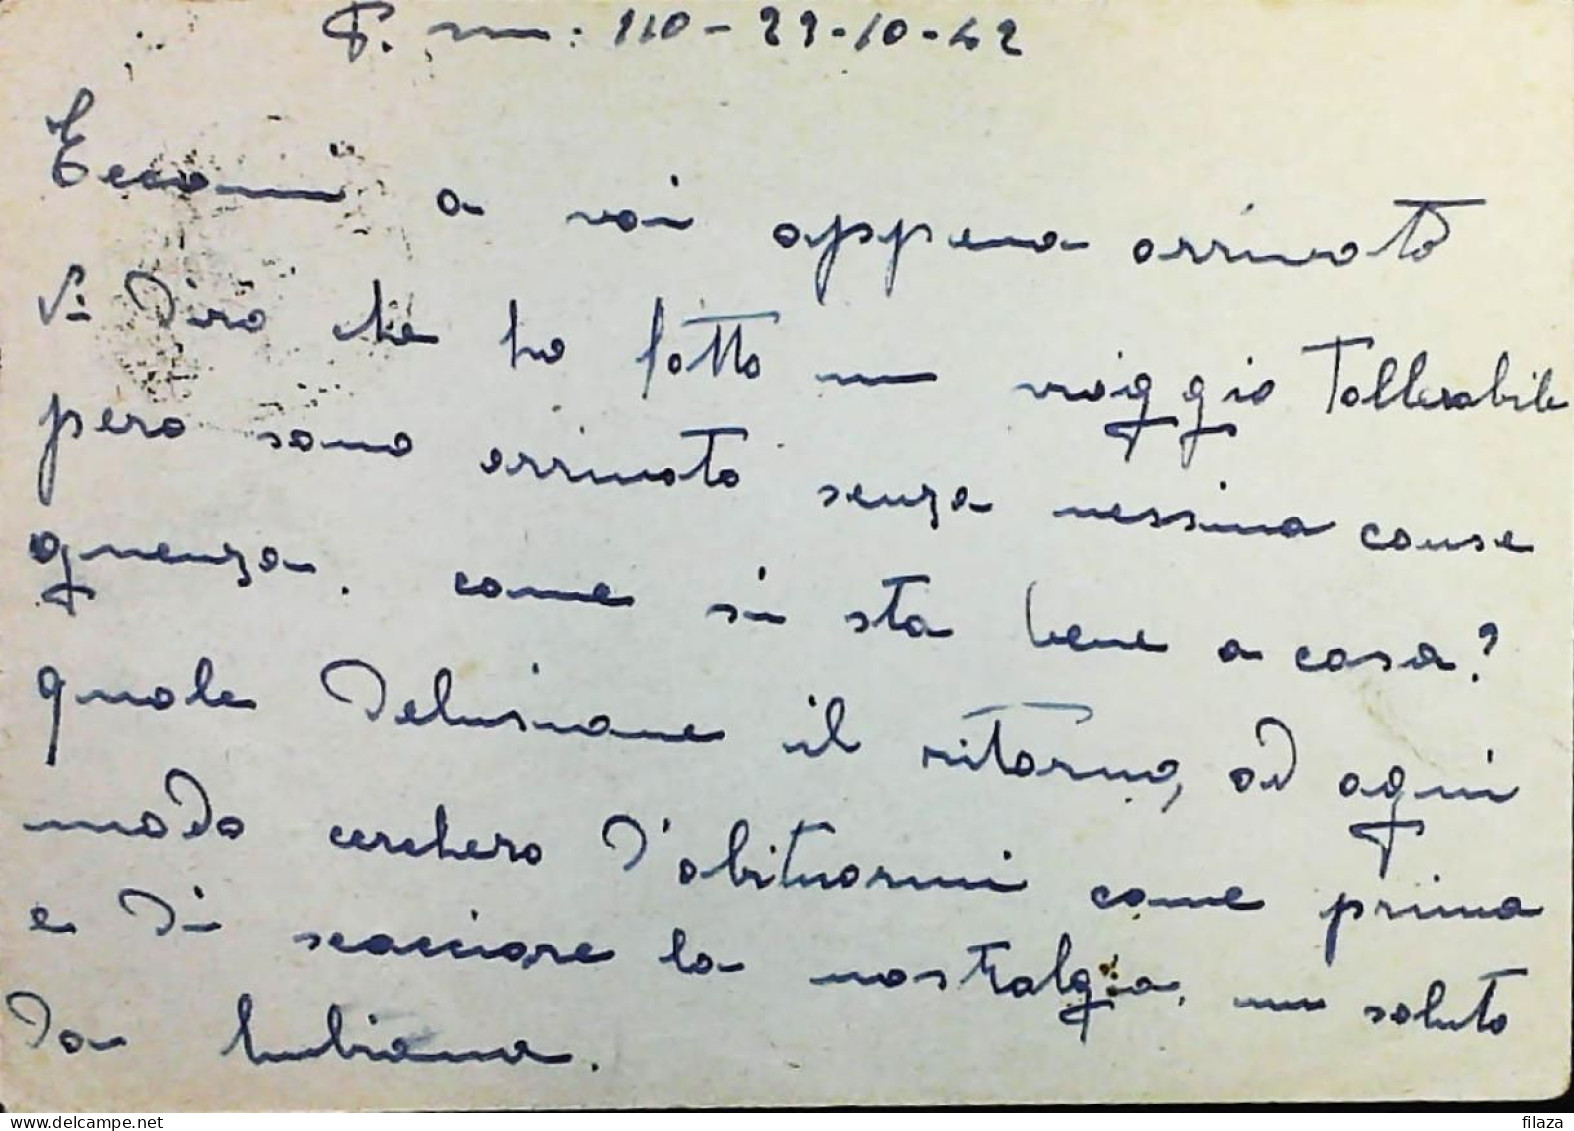 P. m: 110 - 29-10-42
Eccomi a voi appena arrivato
Vi dirò che ho fatto un viaggio Tollerabile
pero sono arrivato senza nessuna conse
quenza. come si sta bene a casa?
quale delusione il ritorno, ad ogni
modo cerchero d'abituarmi come prima
e di scacciare la nostalgia. un saluto
da Lubiana.
filaza